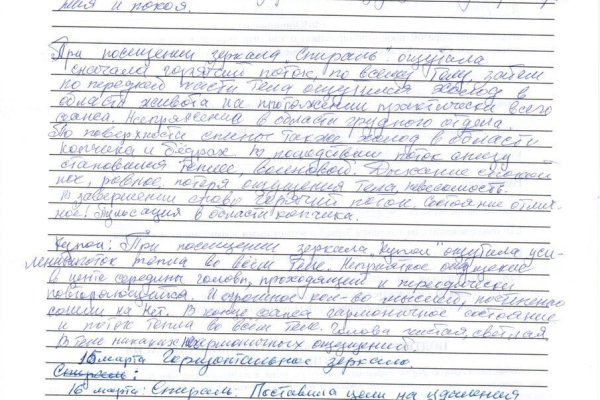 мия и покоя.
При посещении зеркала "Спираль" ощущала
сначала горячий поток, по всему телу, затем
по передней части тела ощущался холод в
области живота на протяжении практически всего
сеанса. Напряжение в области грудного отдела.
По поверхности спины также холод в области
копчика и бёдрах. В последствии поток снизу
становился теплее, волновой. Дыхание спокой
ное, ровное, потеря ощущения тела, невесомость.
В завершении снова горячий поток. Состояние отлич-
ное. Пульсация в области копчика.
Купол: При посещении зеркала "Купол" ощутила уси-
ление поток тепла во всём теле. Неприятное ощущение
в центре середины головы, проходящий и периодически
повторяющийся. И огромное кол-во мыслей, постепенно
сошли на нет. В конце сеанса гармоничное состояние
и поток тепла во всём теле. Голова чистая, светлая
В теле никаких негармоничных ощущений.
15 марта Горизонтальное зеркало.
Спираль:
16 марта: Спираль. Поставила цели на удаления